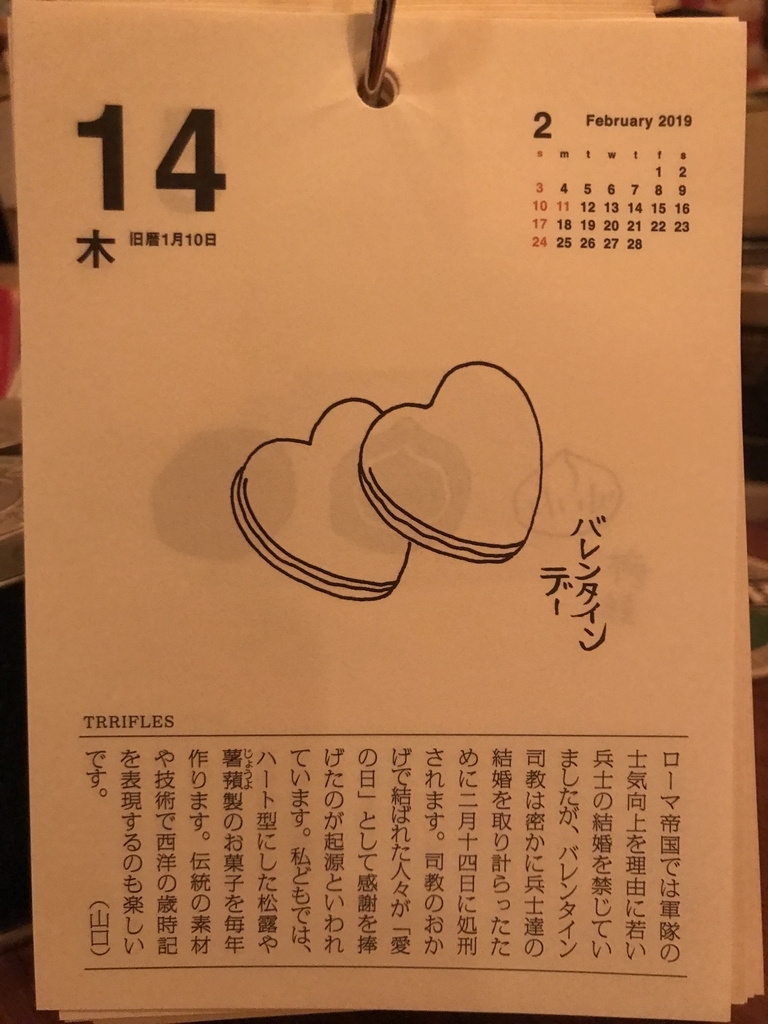 14
木 旧暦1月10日
2 February 2019
s m t w t f s
1 2
3 4 5 6 7 8 9
10 11 12 13 14 15 16
17 18 19 20 21 22 23
24 25 26 27 28
バレンタイン
デー
TRRIFLES
ローマ帝国では軍隊の
士気向上を理由に若い
兵士の結婚を禁じてい
ましたが、バレンタイン
司教は密かに兵士達の
結婚を取り計らったた
めに二月十四日に処刑
されます。司教のおか
げで結ばれた人々が「愛
の日」として感謝を捧
げたのが起源といわれ
ています。私どもでは、
ハート型にした松露や
薯蕷製のお菓子を毎年
じょうよ
作ります。伝統の素材
や技術で西洋の歳時記
を表現するのも楽しい
です。 （山口）